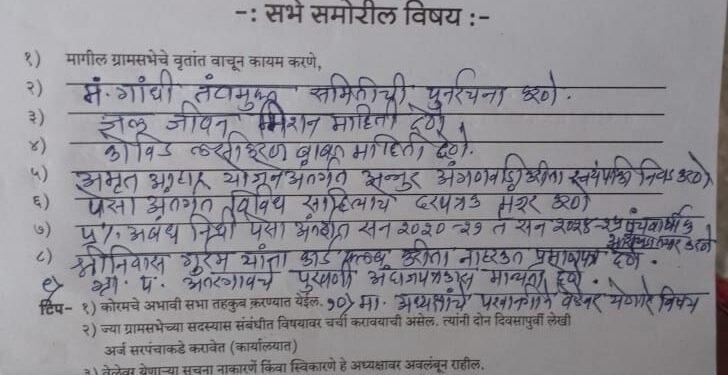 -: सभे समोरील विषय :-
१) मागील ग्रामसभेचे वृतांत वाचून कायम करणे,
२) म. गांधी तंटामुक्त समितीची पुनर्रचना करणे.
३) जल जीवन मिशन माहिती देणे.
४) कोविड लसीकरण बाबत माहिती देणे.
५) अमृत आहार योजनेअंतर्गत अंगणवाडीकरीता स्वयंपाकी निवड करणे
६) पेसा अंतर्गत विविध साहित्याचे दरपत्रक मंजूर करणे
७) ५% अबंध निधी पेसा अंतर्गत सन २०२०-२१ ते सन २०२४-२५ पंचवार्षीक
तयार करणे
८) श्रीनिवास यांना करीता नाहरकत प्रमाणपत्र देणे.
९) ग्रा. पं. पुरवणी अंदाजपत्रकास मान्यता देणे.
टिप- १) कोरमचे अभावी सभा तहकुब करण्यात येईल. १०) मा. अध्यक्षांचे परवानगीने येणारे विषय
२) ज्या ग्रामसभेच्या सदस्यास संबंधीत विषयावर चर्चा करावयाची असेल. त्यांनी दोन दिवसापुर्वी लेखी
अर्ज सरपंचाकडे करावेत (कार्यालयात)
३) वेळेवर येणाऱ्या सुचना नाकारणें किंवा स्विकारणे हे अध्यक्षावर अवलंबून राहील.